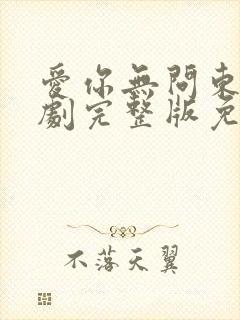 愛你無問東
劇完整版免
不落天翼